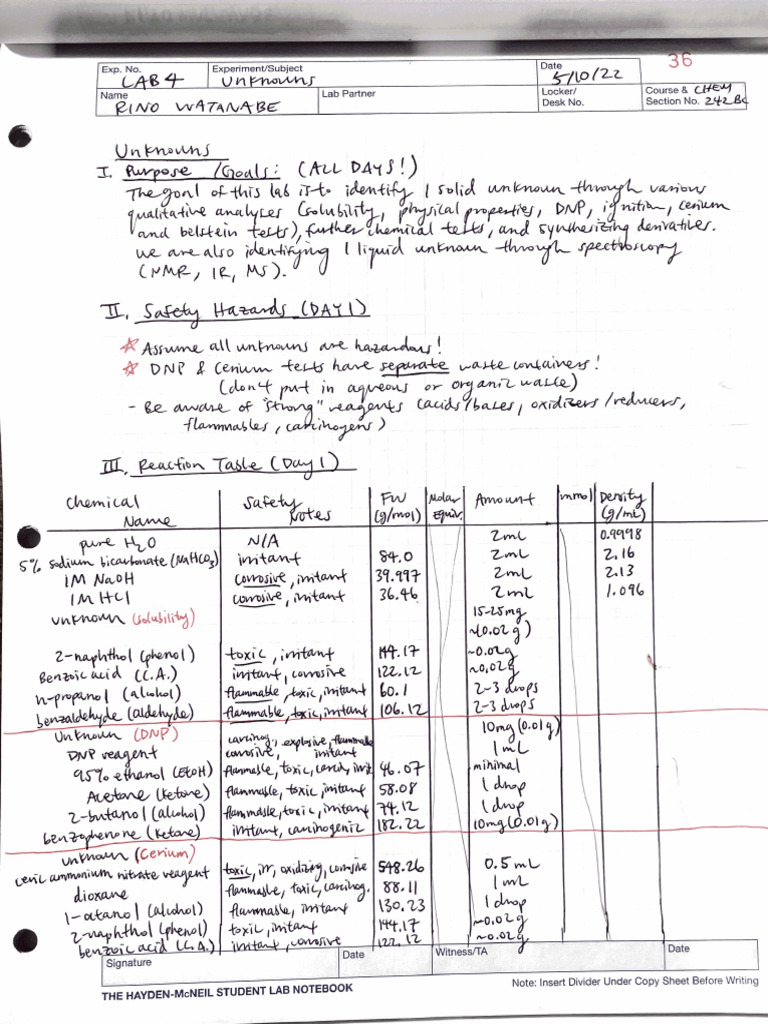 36
Exp. No. LAB 4 Experiment/Subject Unknowns Date 5/10/22
Name RINO WATANABE Lab Partner Locker/ Desk No. Course & Section No. CHEM 242 BC
Unknowns
I. Purpose/Goals: (ALL DAYS!)
The goal of this lab is to identify 1 solid unknown through various
qualitative analyses (solubility, physical properties, DNP, ignition, cerium
and belstein tests), further chemical tests, and synthesizing derivatives.
We are also identifying 1 liquid unknown through spectroscopy
(NMR, IR, MS).
II. Safety Hazards (DAY 1)
☆ Assume all unknowns are hazardous!
☆ DNP & Cerium tests have separate waste containers!
(don't put in aqueous or organic waste)
- Be aware of "strong" reagents (acids/bases, oxidizers/reducers,
flammables, carcinogens)
III. Reaction Table (Day 1)
Chemical Name Safety Notes FW (g/mol) Molar Equiv. Amount mmol Density (g/mL)
pure H₂O N/A 2mL 0.9998
5% sodium bicarbonate (NaHCO₃) irritant 84.0 2mL 2.16
1M NaOH corrosive, irritant 39.997 2mL 2.13
1M HCl corrosive, irritant 36.46 2mL 1.096
unknown (solubility) 15-25mg ~(0.02g)
2-naphthol (phenol) toxic, irritant 144.17 ~0.02g
Benzoic acid (C.A.) irritant, corrosive 122.12 ~0.02g
n-propanol (alcohol) flammable, toxic, irritant 60.1 2-3 drops
benzaldehyde (aldehyde) flammable, toxic, irritant 106.12 2-3 drops
Unknown (DNP) 10mg (0.01g)
DNP reagent carcinog., explosive, flammable corrosive, irritant 1mL
95% ethanol (EtOH) flammable, toxic, carcin, irrit 46.07 minimal
Acetone (ketone) flammable, toxic, irritant 58.08 1 drop
2-butanol (alcohol) flammable, toxic, irritant 74.12 1 drop
benzophenone (ketone) irritant, carcinogenic 182.22 10mg (0.01g)
unknown (Cerium)
ceric ammonium nitrate reagent toxic, irr, oxidizing, corrosive 548.26 0.5mL
dioxane flammable, toxic, carcinog. 88.11 1mL
1-octanol (alcohol) flammable, irritant 130.23 1 drop
2-naphthol (phenol) toxic, irritant 144.17 ~0.02g
benzoic acid (C.A.) irritant, corrosive 122.12 ~0.02g
Signature Date Witness/TA Date
THE HAYDEN-McNEIL STUDENT LAB NOTEBOOK Note: Insert Divider Under Copy Sheet Before Writing